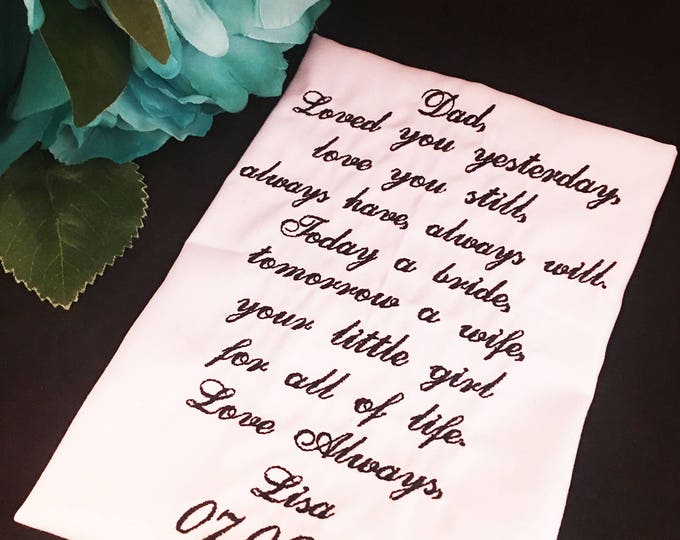 Dad,
Loved you yesterday,
love you still,
always have, always will.
Today a bride,
tomorrow a wife,
your little girl
for all of life.
Love Always,
Lisa